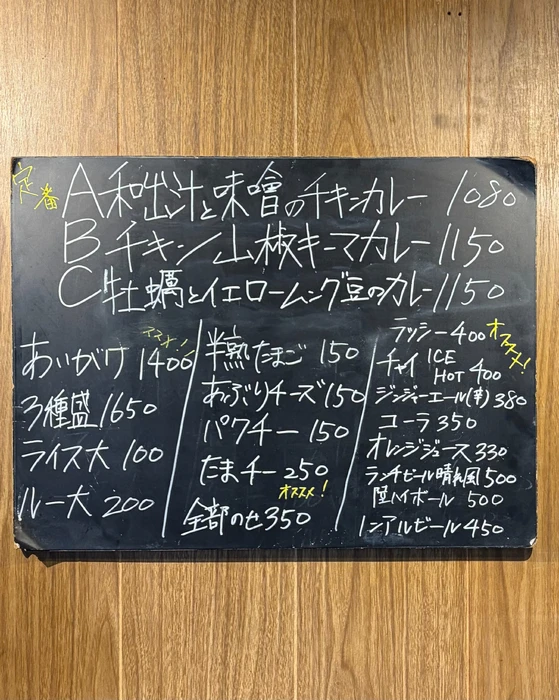 定番
A 和出汁と味噌のチキンカレー 1080
B チキン山椒キーマカレー 1150
C 牡蠣とイエロームング豆のカレー 1150
ススメ!
あいがけ 1400
3種盛 1650
ライス大 100
ルー大 200
半熟たまご 150
あぶりチーズ 150
パクチー 150
たまチー 250
オススメ!
全部のせ 350
ラッシー 400
オススメ!
チャイ ICE HOT 400
ジンジャーエール(辛) 380
コーラ 350
オレンジジュース 330
ランチビール晴れ風 500
昼ハイボール 500
ノンアルビール 450